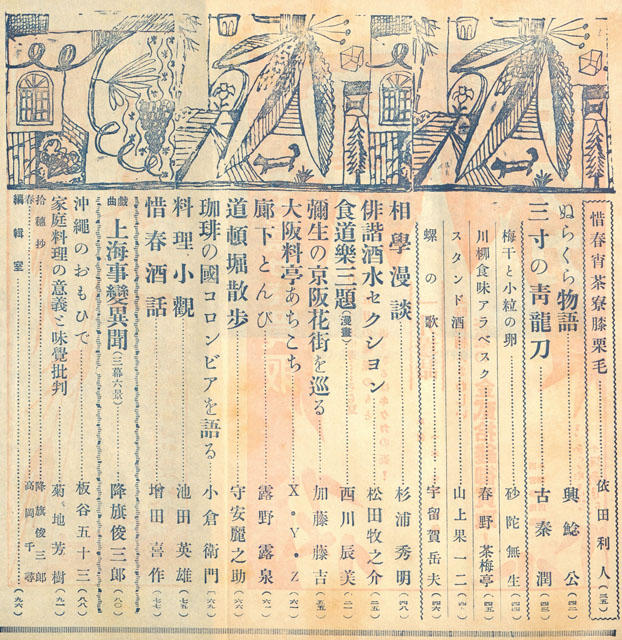 惜春宵茶寮膝栗毛 依田利人 (三五)
ぬらくら物語 興鯰公 (四二)
三寸の靑龍刀 古泰潤 (四三)
梅干と小粒の卵 砂陀無生 (四八)
川柳食味アラベスク 春野茶梅亭 (四五)
スタンド酒 山上果一二 (四)
螺の歌 宇留賀岳夫 (四六)
相學漫談 杉浦秀明 (四八)
俳諧酒水セクション 松田牧之介 (二五)
食道樂三題(漫畫) 西川辰美 (二一)
彌生の京阪花街を巡る 加藤藤吉 (五五)
大阪料亭あちこち X・Y・Z (六一)
廊下とんび 露野露泉 (六一)
道頓堀散步 守安麗之助 (六六)
珈琲の國コロンビアを語る 小倉衛門 (六九)
料理小觀 池田英雄 (七五)
惜春酒話 增田喜作 (七七)
戲曲 上海事變異聞(三幕六景) 降旗俊三郎 (八〇)
沖繩のおもひで 板谷五十三 (八八)
家庭料理の意義と味覺批判 菊地芳樹 (九一)
春 拾穗抄 降旗俊三郎
編輯室 高岡千尋 (九六)